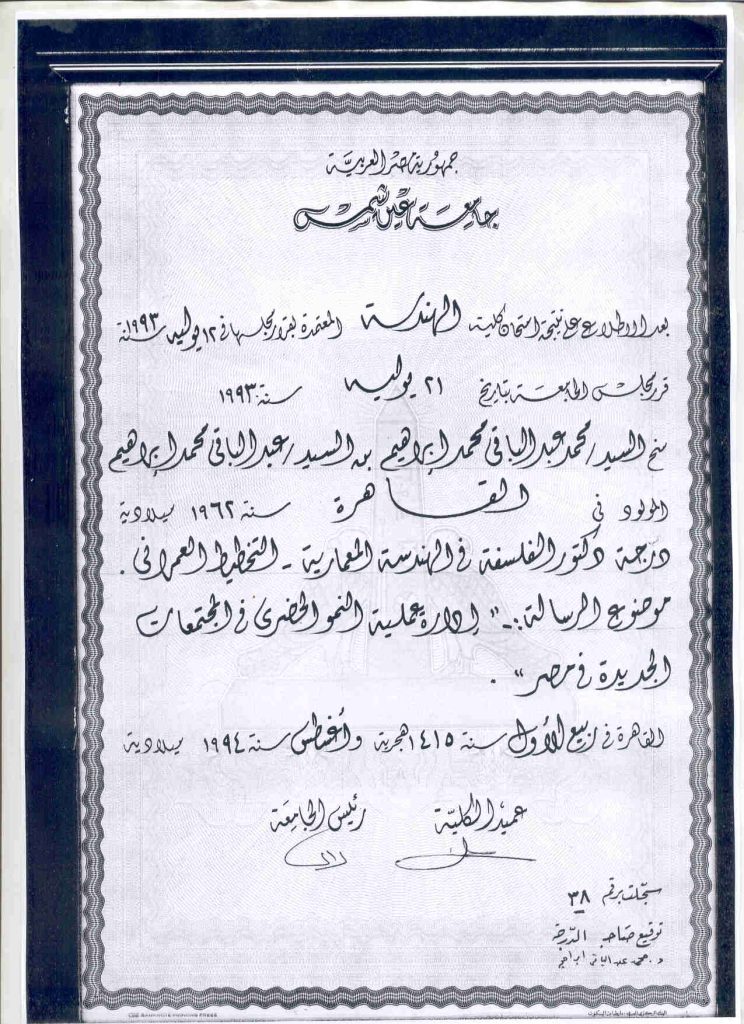 جمهورية مصر العربية
جامعة عين شمس
بعد الاطلاع على نتيجة امتحان كلية الهندسة المعتمدة بقرار مجلسها في ١٢ يوليه سنة ١٩٩٣
قرر مجلس الجامعة بتاريخ ٢١ يوليه سنة ١٩٩٣
منح السيد / محمد عبد الباقى محمد إبراهيم بن السيد / عبد الباقى محمد إبراهيم
المولود فى القاهرة سنة ١٩٦٢ ميلادية
درجة دكتور الفلسفة فى الهندسة المعمارية - التخطيط العمرانى .
موضوع الرسالة :- " إدارة عملية النمو الحضرى فى المجتمعات
الجديدة فى مصر " .
القاهرة فى ربيع الأول سنة ١٤١٥ هجرية وأغسطس سنة ١٩٩٤ ميلادية
عميد الكلية رئيس الجامعة
سجلت برقم ٣٨
توقيع صاحب الدرجة
د. محمد عبد الباقى ابراهيم